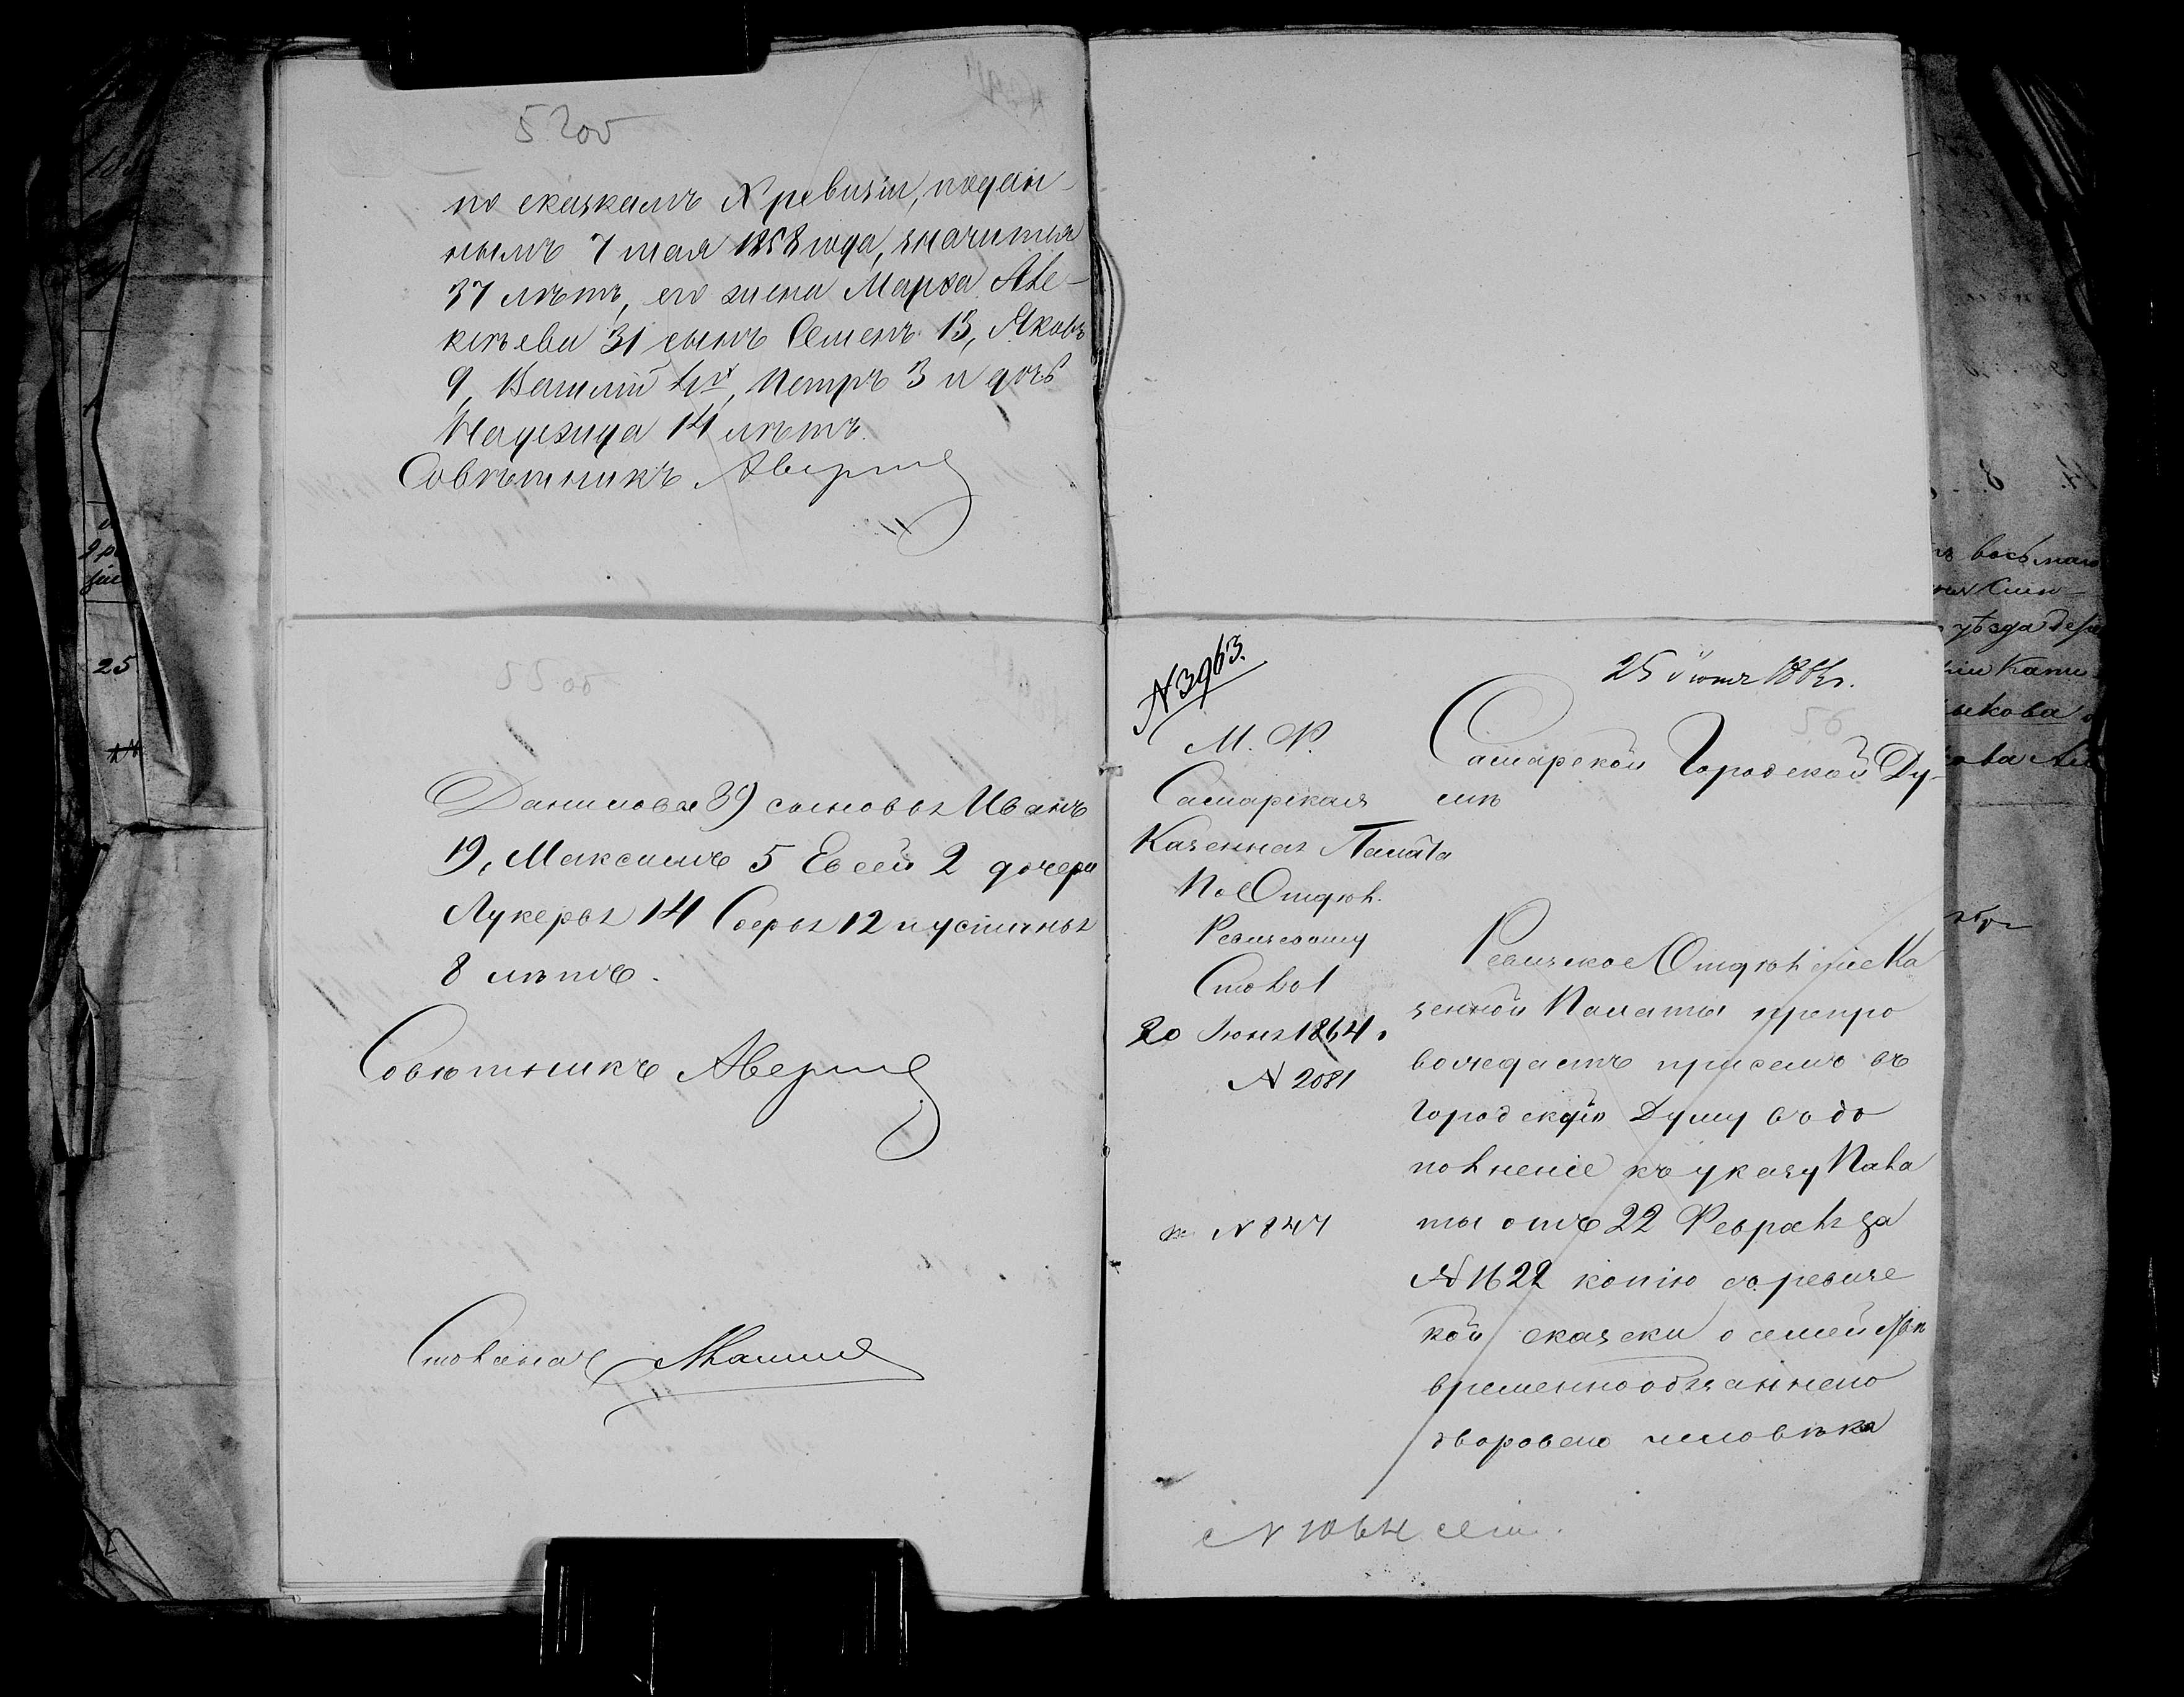 52об
по сказкамъ X ревизіи, подан-
нымъ 7 мая 1858 года, значится
37 лѣтъ, его жена Марѳа Аве-
кѣева 31 сынъ Семенъ 13, Яковъ
9, Василій 4х, Петръ 3 и дочь
Надежда 14 лѣтъ.
Совѣтникъ
55об
Данилова 39) сыновья Иванъ
19, Максимъ 5 Евсей 2 дочери
Лукерья 14 12 и Устинья
8 лѣтъ.
Совѣтникъ
Столонач 
N 3963.
25 Іюня 186 г.
56
М. Ф.
Самарская
Казенная Палата
По Отдѣл.
Ревизскому
Столъ 1
20 Іюня 1864.
N 2081
N 847
Самарской Городской Ду-
мѣ
Ревизское Отдѣленіе Ка
зенной Палаты препро
вождаетъ при семъ въ
Городскую Думу въ до
полненіе къ указу Пала
ты отъ 22 Февраля за
N 1622 копію съ ревизс
кой сказки о семействѣ
временнообязаннаго
двороваго человѣка
N 1064 сем.
восьмаго
уѣзда
25